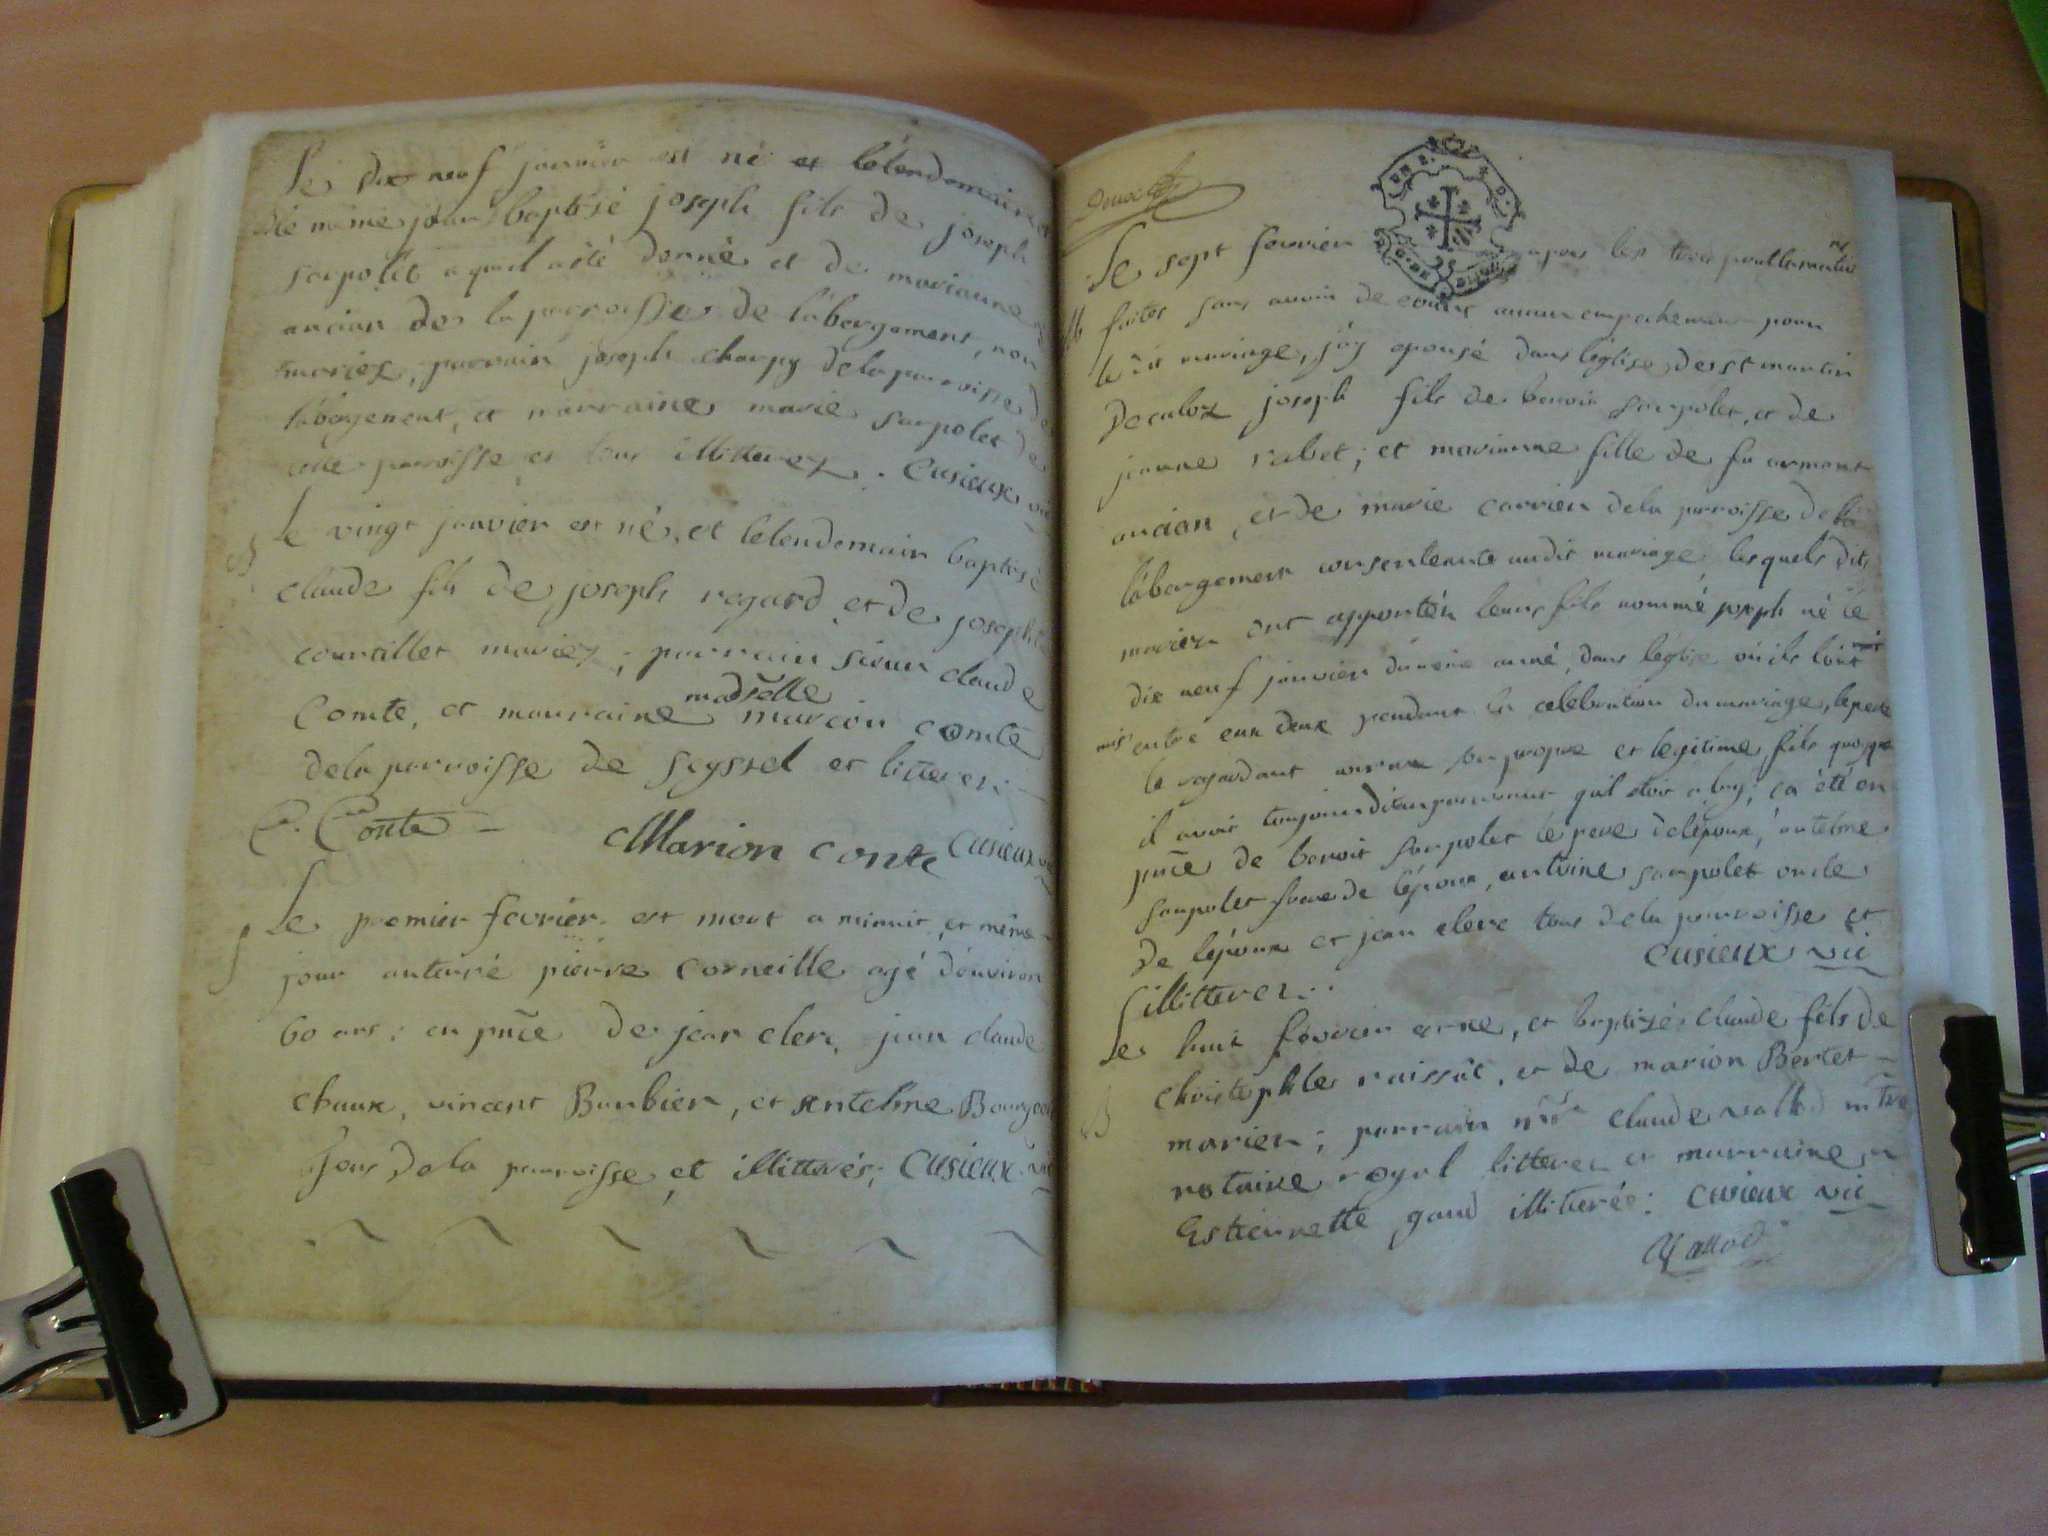 Le dix neuf janvier est né et lelendemain
le même jour baptisé joseph fils de joseph
sarpolet aquel a été donné et de marianne
ancian de la parroisse de labergement, non
mariez, parrain joseph charpy dela parroisse de
labergement, et marraine marie sarpolet de
cette parroisse et tous illitterez. Cusieux vic
B
Le vingt janvier est né, et lelendemain baptisé
claude fils de joseph regard et de josephte
courtillet mariez; parrain sieur claude
Comte, et marraine madselle marion comte
dela parroisse de seyssel et litterez.
C. Conte Marion conte Cusieux vic
S
Le premier fevrier est mort a minuit, et même
jour anterré pierre corneille agé d'environ
60 ans: en pnce de jean clerc, jean claude
chaux, vincent Barbier, et antelme Bourgeois
Tous dela parroisse, et illitterés; Cusieux vic
Le sept fevrier apres les trois
faites sans avoir decouvert aucun empechement pour
le dit mariage, j'ay epousé dans l'église de st martin
deculoz joseph fils de benoit sarpolet, et de
jeanne rubet; et marianne fille de fu armant
ancian, et de marie carrier dela parroisse de
labergement consentente audit mariage lesquels dits
mariez ont apporter leurs fils nommé joseph né le
dix neuf janvier du même année, dans l'église où ils l'ont
mis entre eux deux pendant la celebration du mariage, le pere
le regardant comme son propre et legitime fils quoyque
il avoit toujours dit auparavant qu'il etoit a luy; ca été en
pnce de benoit sarpolet le pere de l'époux, antelme
sarpolet frere de lépoux, antoine sarpolet oncle
de lépoux et jean clerc tous dela parroisse et
illitterez. Cusieux vic
B
Le huit fevrier est né, et baptizé claude fils de
christophle raissût, et de marion Bertet
mariez; parrain claude mallod mtre
notaire royal litterez et marraine
Estiennette gaud illiterée: Cusieux vic
Mallod